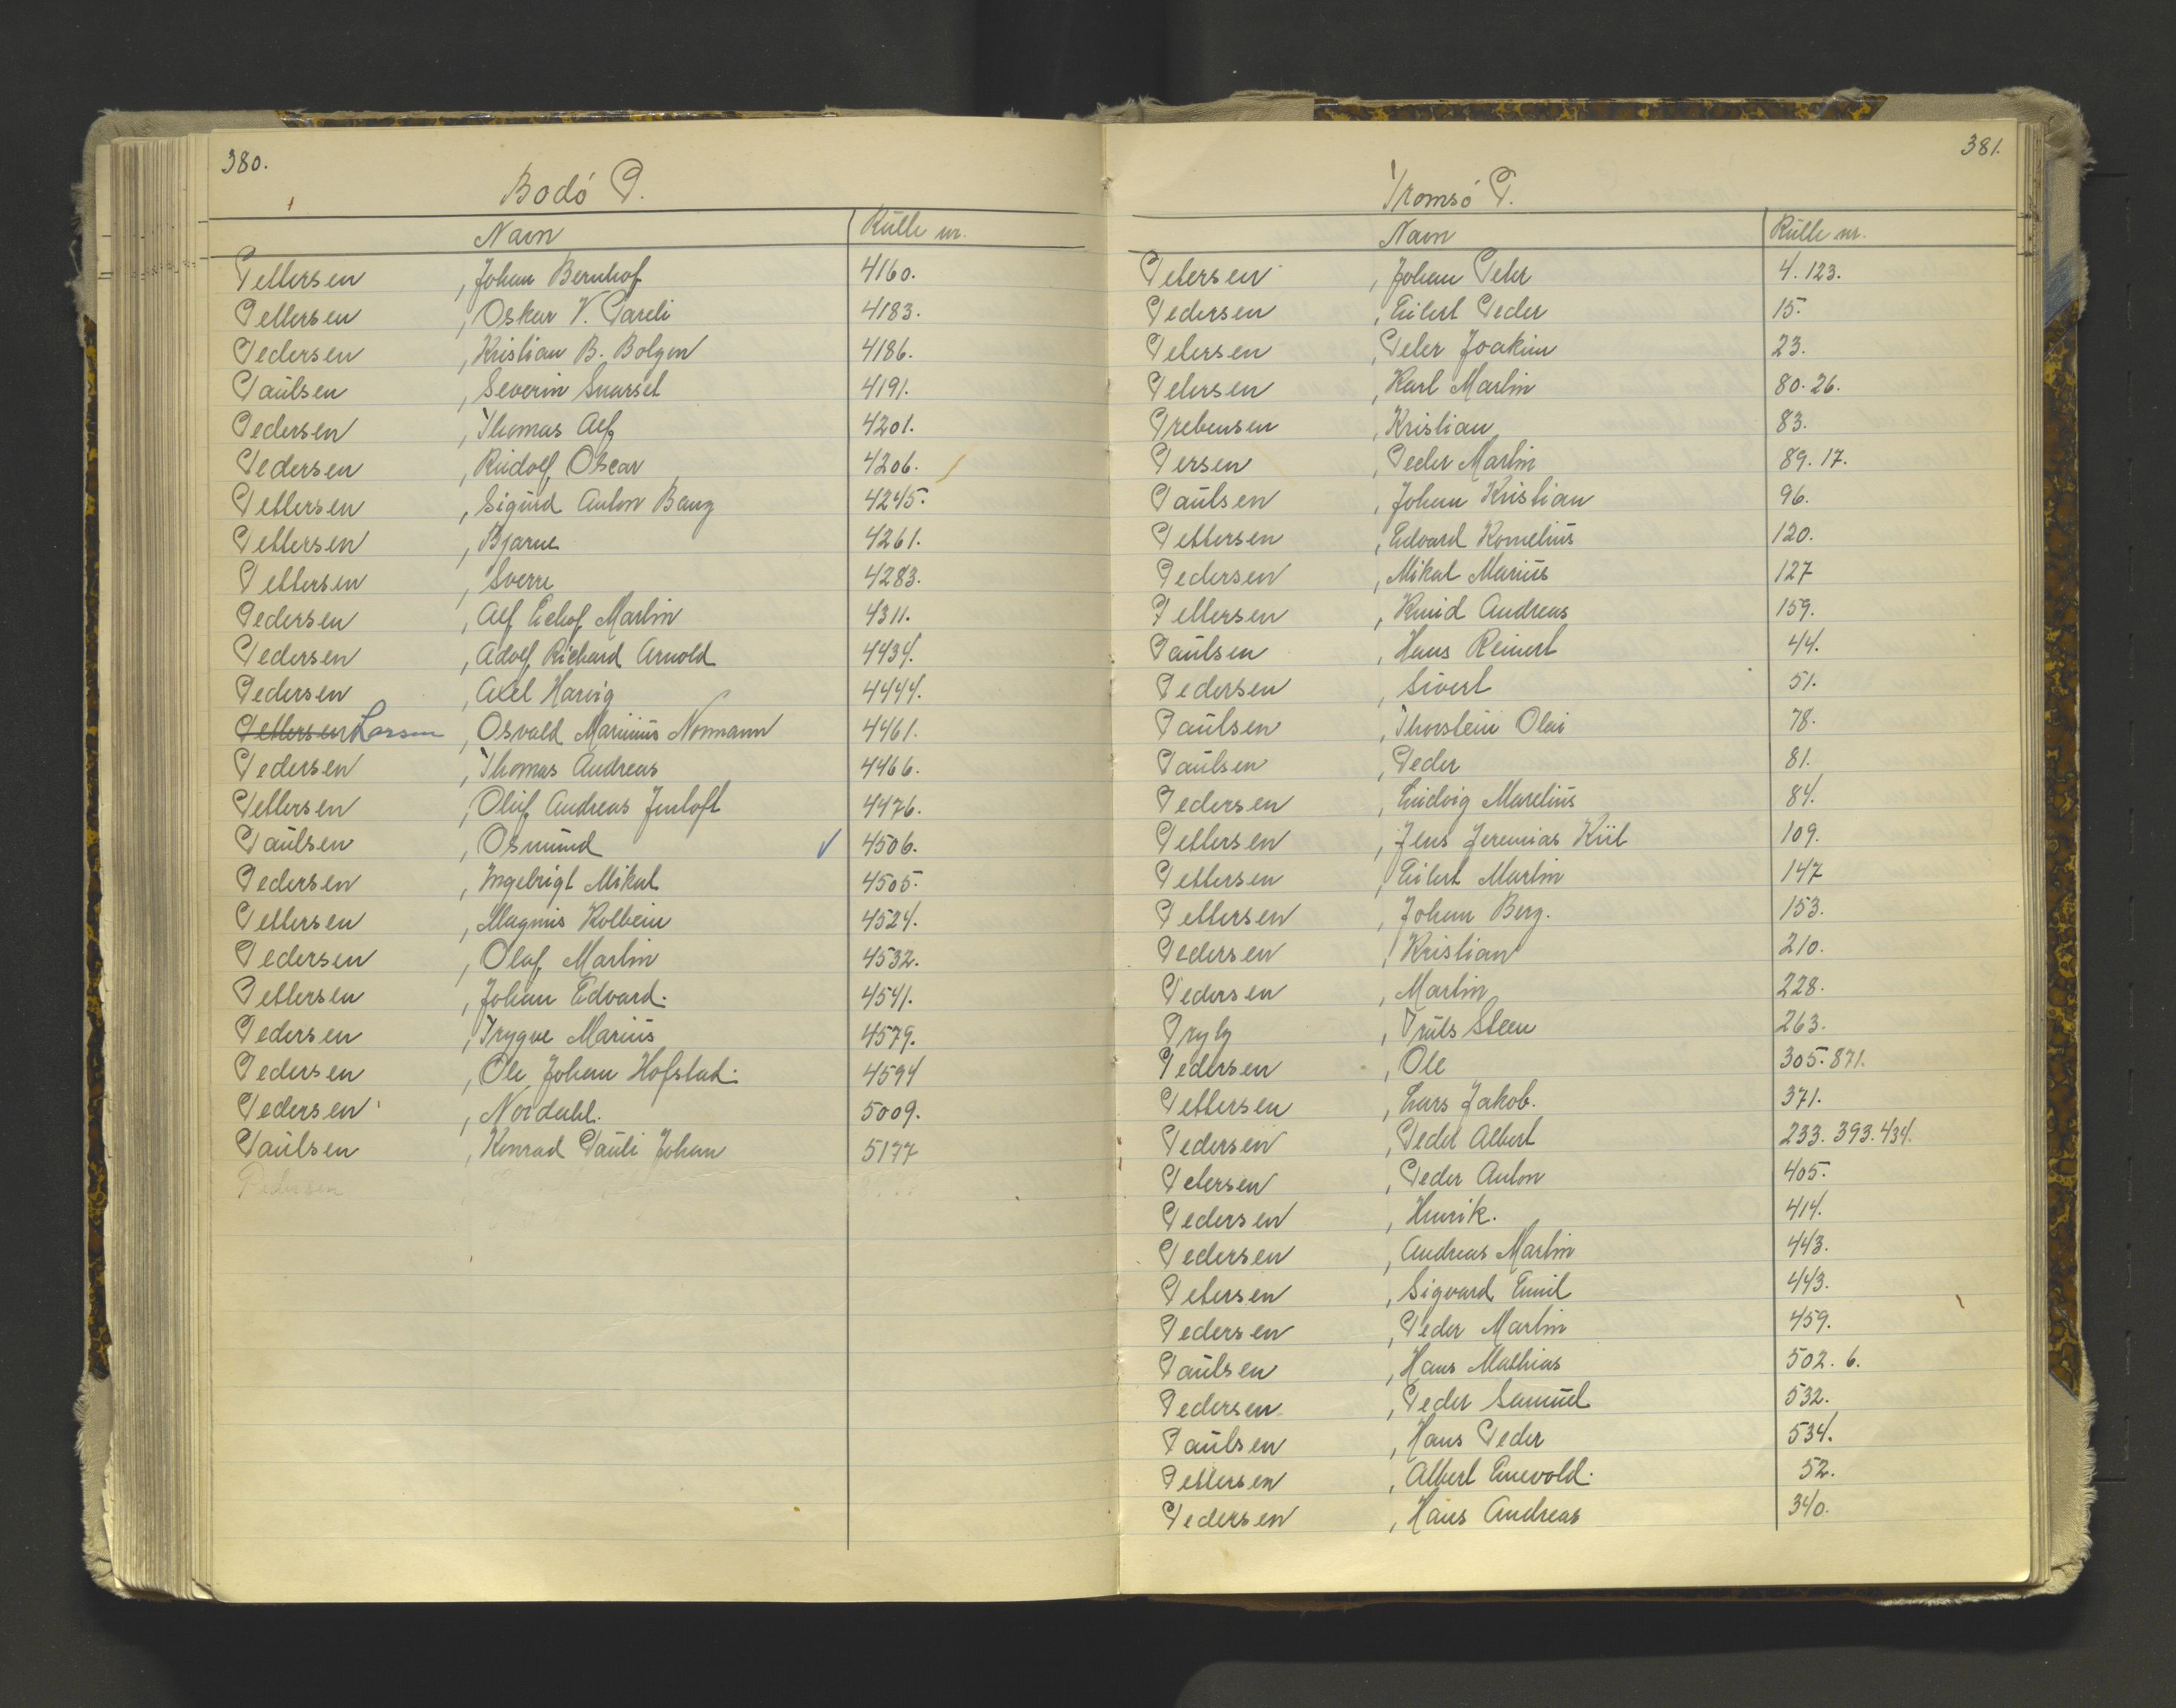 380.
Bodó P.
Navn Rulle nr.
Pettersen , Johan Bernhof 4160.
Pettersen , Oskar V. Pareli 4183.
Pedersen , Kristian B. Bolgen 4186.
Paulsen , Severin 4191.
Pedersen , Thomas Alf 4201.
Pedersen , Rudolf Oscar 4206.
Pettersen , Sigurd Anton Bang 4245.
Pettersen , Bjarne 4261.
Pettersen , Sverre 4283.
Pedersen , Alf Martin 4311.
Pedersen , Adolf Richard Arnold 4434.
Pedersen , Axel Harvig 4444.
Pettersen Larsen , Osvald Marinius Normann 4461.
Pedersen , Thomas Andreas 4466.
Pettersen , Oluf Andreas Jentoft 4476.
Paulsen , Osmund ✓ 4506.
Pedersen , Ingebrigt Mikal 4505.
Pettersen , Magnus Kolbein 4524.
Pedersen , Olaf Martin 4532.
Pettersen , Johan Edvard. 4541.
Pedersen , Trygve Marius 4579.
Pedersen , Ole Johan Hofstad. 4594
Pedersen , Nordahl. 5009.
Paulsen , Konrad Pauli Johan 5177
Pedersen
381.
Tromsó P.
Navn Rulle nr.
Petersen , Johan Peter 4. 123.
Pedersen , Eilert Peder 15.
Petersen , Peter Joakim 23.
Petersen , Karl Martin 80. 26.
Prebensen , Kristian 83.
Persen , Peder Martin 89. 17.
Paulsen , Johan Kristian 96.
Pettersen , Edvard Kornelius 120.
Pedersen , Mikal Marius 127
Pettersen , Knud Andreas 159.
Paulsen , Hans Reinert 44.
Pedersen , Sivert 51.
Paulsen , Thorstein Olai 78.
Paulsen , Peder 81.
Pedersen , Ludvig Marelius 84.
Pettersen , Jens Jeremias Kiil 109.
Pettersen , Eilert Martin 147
Pettersen , Johan Berg. 153.
Pedersen , Kristian 210.
Pedersen , Martin 228.
Prytz , Truls Steen 263.
Pedersen , Ole 305. 871.
Pettersen , Lars Jakob. 371.
Pedersen , Peder Albert 233. 393. 434.
Petersen , Peder Anton 405.
Pedersen , Henrik. 414.
Pedersen , Andreas Martin 443.
Petersen , Sigvard Emil 443.
Pedersen , Peder Martin 459.
Paulsen , Hans Mathias 502. 6.
Pedersen , Peder Samuel 532.
Paulsen , Hans Peder 534.
Pettersen , Albert Enevold. 52.
Pedersen , Hans Andreas 340.